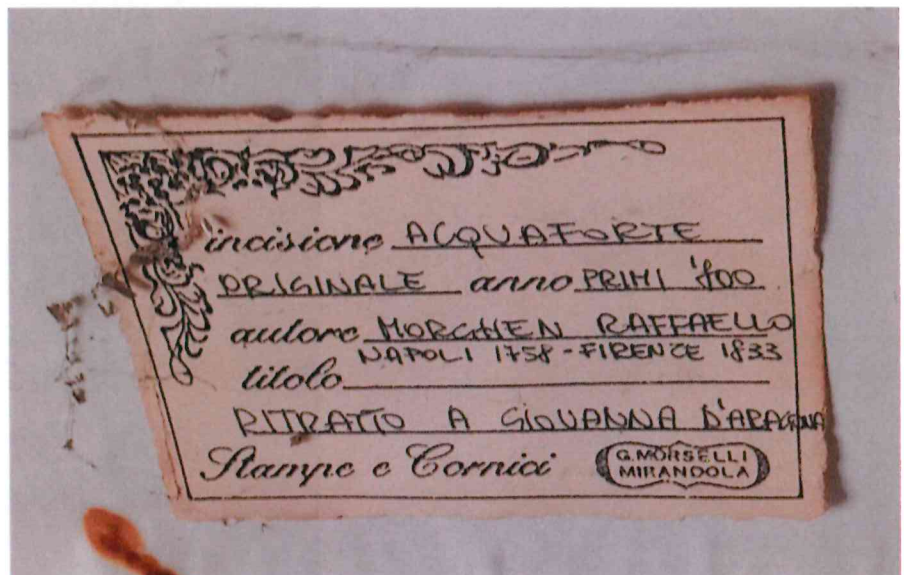 incisione ACQUAFORTE
ORIGINALE anno PRIMI '800
autore MORGHEN RAFFAELLO
NAPOLI 1758 - FIRENZE 1833
titolo
RITRATTO A GIOVANNA D'ARAGONA
Stampe e Cornici G. MORSELLI
MIRANDOLA